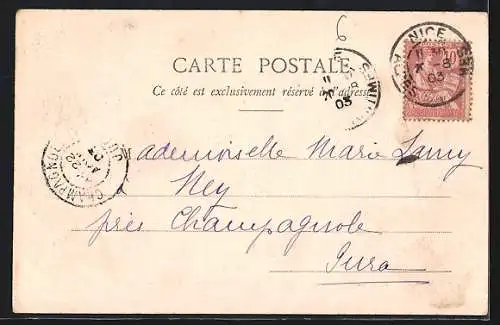 6
CARTE POSTALE
Ce côté est exclusivement réservé à l'adresse
Mademoiselle Marie Lamy
Ney
près Champagnole
Jura
NICE
03
10
03
CHAMPAGNOLE